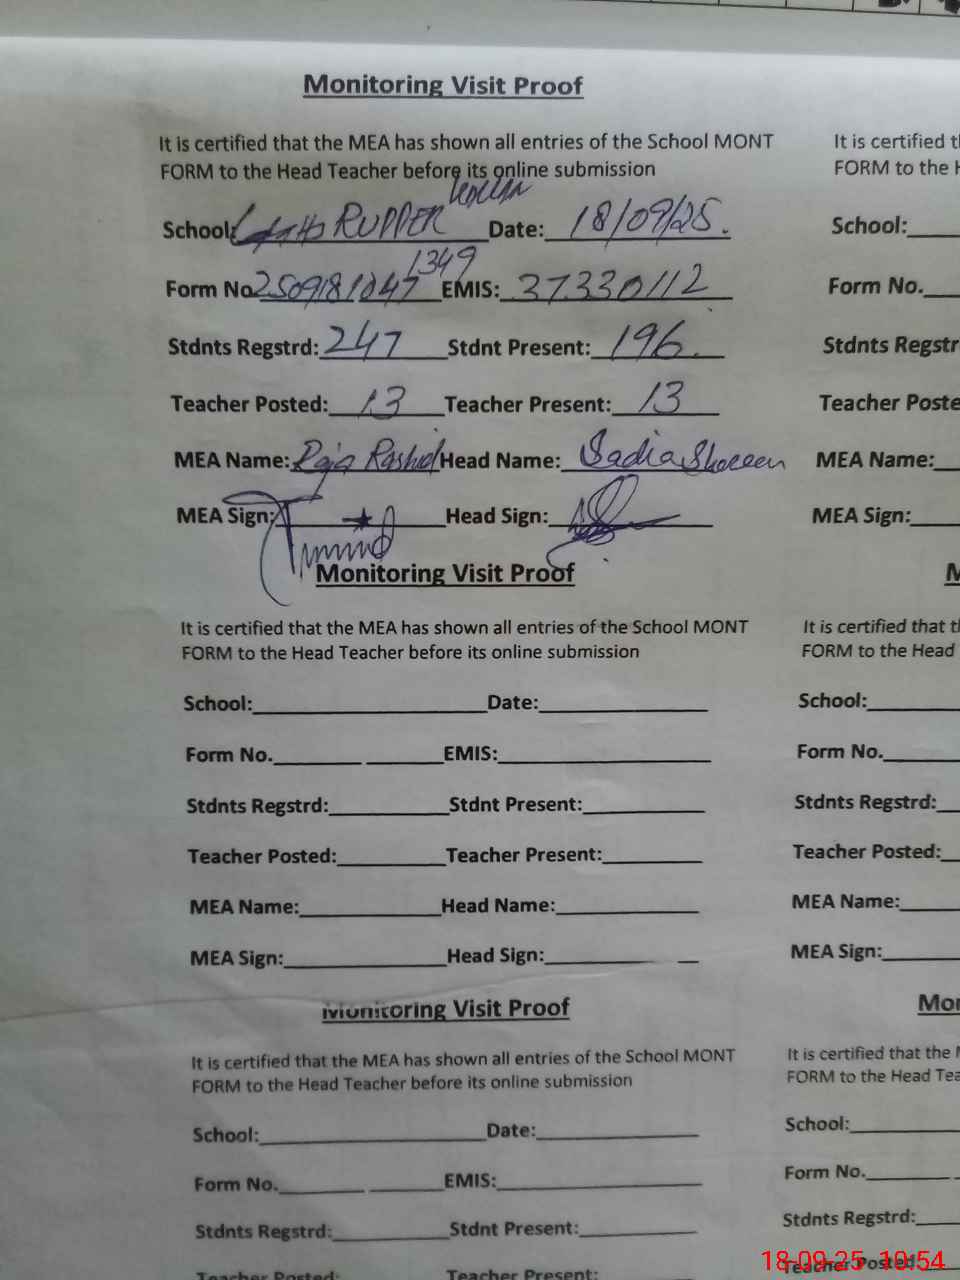 Monitoring Visit Proof
It is certified that the MEA has shown all entries of the School MONT
FORM to the Head Teacher before its online submission
School: RUPPER Date: 18/09/25.
Form No. 2509181047 1349 EMIS: 37330112
Stdnts Regstrd: 247 Stdnt Present: 196.
Teacher Posted: 13 Teacher Present: 13
MEA Name: Raja Rashid Head Name: Sadia Shareen
MEA Sign: Head Sign:
Monitoring Visit Proof
It is certified that the MEA has shown all entries of the School MONT
FORM to the Head Teacher before its online submission
School: Date:
Form No. EMIS:
Stdnts Regstrd: Stdnt Present:
Teacher Posted: Teacher Present:
MEA Name: Head Name:
MEA Sign: Head Sign:
Monitoring Visit Proof
It is certified that the MEA has shown all entries of the School MONT
FORM to the Head Teacher before its online submission
School: Date:
Form No. EMIS:
Stdnts Regstrd: Stdnt Present:
Teacher Posted: Teacher Present:
It is certified
FORM to the
School:
Form No.
Stdnts
Teacher
MEA Name:
MEA Sign:
It is certified that
FORM to the Head
School:
Form No.
Stdnts Regstrd:
Teacher Posted:
MEA Name:
MEA Sign:
It is certified that the
FORM to the Head
School:
Form No.
Stdnts Regstrd:
Teacher Posted:
18-09-25 10:54